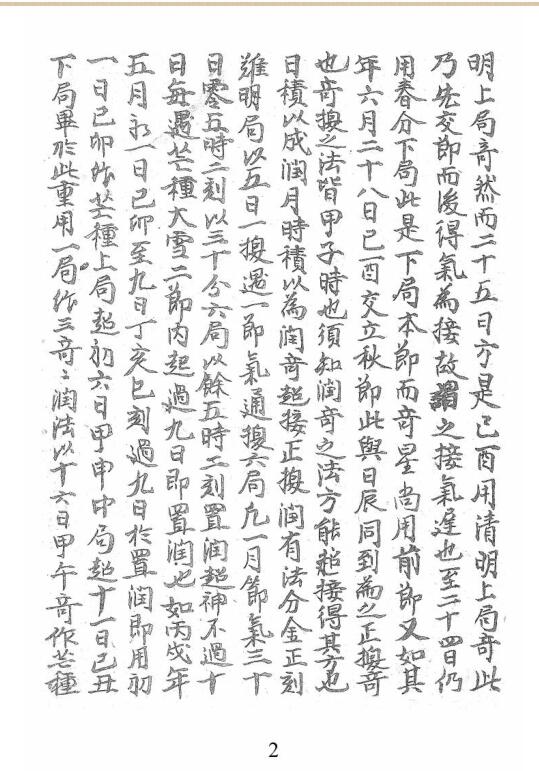 明上局竒然而二十五日方是己酉用清明上局竒此
乃先交節而後得氣為接故謂之接氣遲也至二十四日仍
用春分下局此是下局本節而竒星尚用前節又如其
年六月二十八日己酉交立秋節此與日辰同到為之正換竒
也竒換之法皆甲子時也須知潤竒之法方能超接得其方也
日積以成潤月時積以為潤竒超接正換潤有法分金正刻
雖明局以五日一換遇一節氣通換六局凢一月節氣三十
日零五時二刻以三十分六局以餘五時二刻置潤超神不過十
日每遇芒種大雪二節内超過九日即置潤也如丙戌年
五月初一日己卯至九日丁亥巳刻過九日於置潤即用初
一日己卯作芒種上局超初六日甲申中局超十一日己丑
下局畢於此重用一局作三竒〻潤法以十六日甲午竒作芒種
2